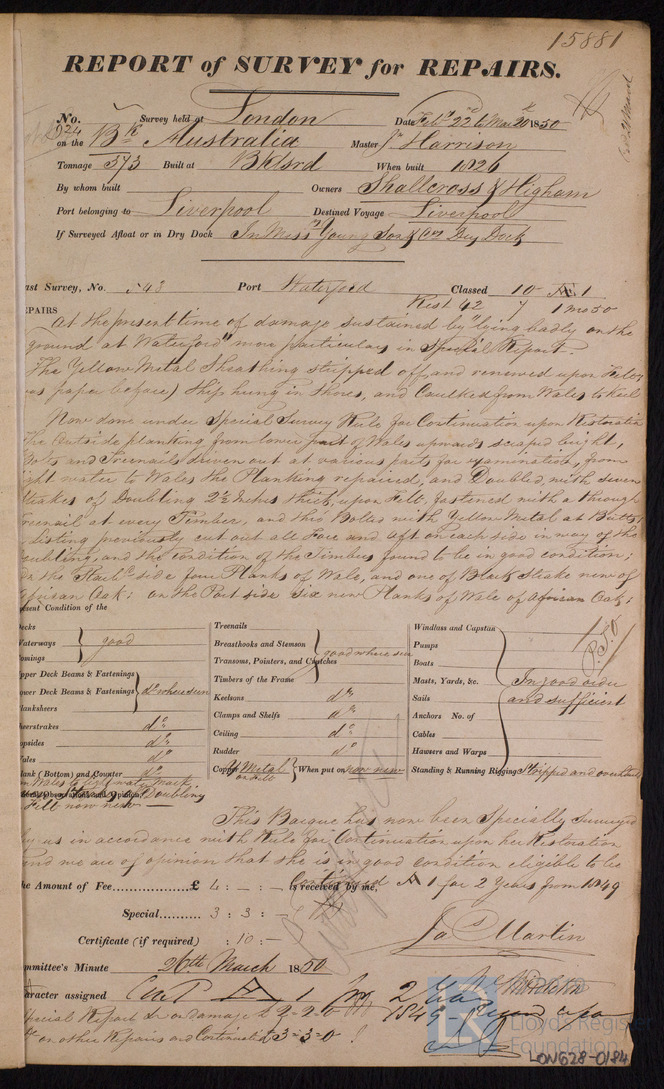 15881
REPORT of SURVEY for REPAIRS.
No. 1024 Survey held at London Date Feby 22d to Mar 20th 1850
on the Bk Australia Master Jn Harrison
Tonnage 373 Built at Bktsrd When built 1826
By whom built Owners Shallcross & Higham
Port belonging to Liverpool Destined Voyage Liverpool
If Surveyed Afloat or in Dry Dock In Messrs Young Son & Coy Dry Dock
ast Survey, No. 543 Port Waterford Classed 10 A 1
Rest 42 7 1 mo 50
EPAIRS
At the present time of damage sustained by "lying badly on the
ground at Waterford" more particulars in Special Report.
The Yellow Metal Sheathing stripped off, and renewed upon Felt
as paper before) Ship hung in Shores, and Caulked from Wales to Keel
Now done under Special Survey Rule for Continuation upon Restoration
The Outside planking from lower part of Wales upwards scraped bright,
Bolts and Treenails driven out at various parts for examination, from
ight water to Wales the Planking repaired, and Doubled, with seven
Strakes of Doubling 2½ Inches thick, upon Felt, fastened with a through
reenail at every Timber, and this Bolted with Yellow Metal at Butts,
Listing previously cut out all Fore and aft on each side in way of the
oubling, and the condition of the Timbers found to be in good condition;
on the Starbd side four Planks of Wale, and one of Black Strake new of
African Oak; on the Port side Six new Planks of Wale of African Oak;
P.T.O
esent Condition of the
ecks
Waterways good
omings
pper Deck Beams & Fastenings
ower Deck Beams & Fastenings do where seen
lanksheers
heerstrakes do
opsides do
ales do
lank (Bottom) and Counter do
Treenails
Breasthooks and Stemson good where seen
Transoms, Pointers, and Crutches
Timbers of the Frame
Keelsons do
Clamps and Shelfs do
Ceiling do
Rudder do
Copper Y Metal on Felt When put on now new
Windlass and Capstan
Pumps
Boats
Masts, Yards, &c. In good order
Sails and sufficient
Anchors No. of
Cables
Hawsers and Warps
Standing & Running Rigging Stripped and overhauled
Wales to light water mark
Doubling
Felt now new
This Barque has now been Specially Surveyed
by us in accordance with Rule for Continuation upon her Restoration
and we are of opinion that she is in good condition eligible to be
Continued A 1 for 2 Years from 1849
he Amount of Fee............... £ 4 : - : - is received by me,
Special.......... 3 : 3 : -
Jas Martin
Certificate (if required) : 10 : -
ommittee's Minute 26th March 1850
haracter assigned Cont A 1 for 2 Years
Special Report for damage £ 2-2-0 1849
on other Repairs and Continuation 3=3=0
Lloyd's Register
Foundation
LON628-0184